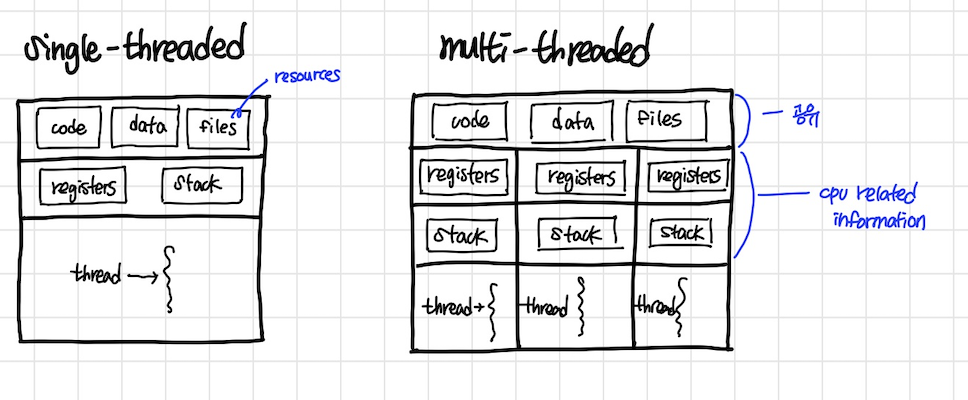 single-threaded
resources
code data files
registers stack
thread →
multi-threaded
code data files
공유
registers registers registers
cpu related
information
stack stack stack
thread → thread thread